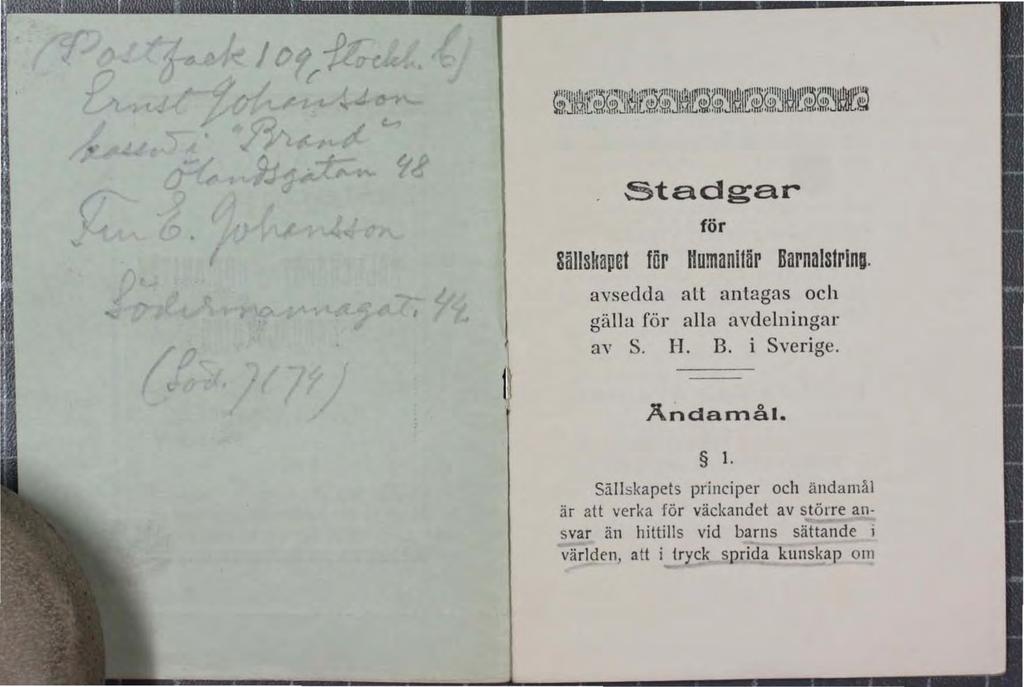 (Postfack 109, Stockh. 6)
Ernst Johansson
kassör i "Brand"
Ölandsgatan 48
Fru E. Johansson
Södermannagat. 44
(Söd. 7174)
Stadgar
för
Sällskapet för Humanitär Barnalstring.
avsedda att antagas och
gälla för alla avdelningar
av S. H. B. i Sverige.
Ändamål.
§ 1.
Sällskapets principer och ändamål
är att verka för väckandet av större an-
svar än hittills vid barns sättande i
världen, att i tryck sprida kunskap om